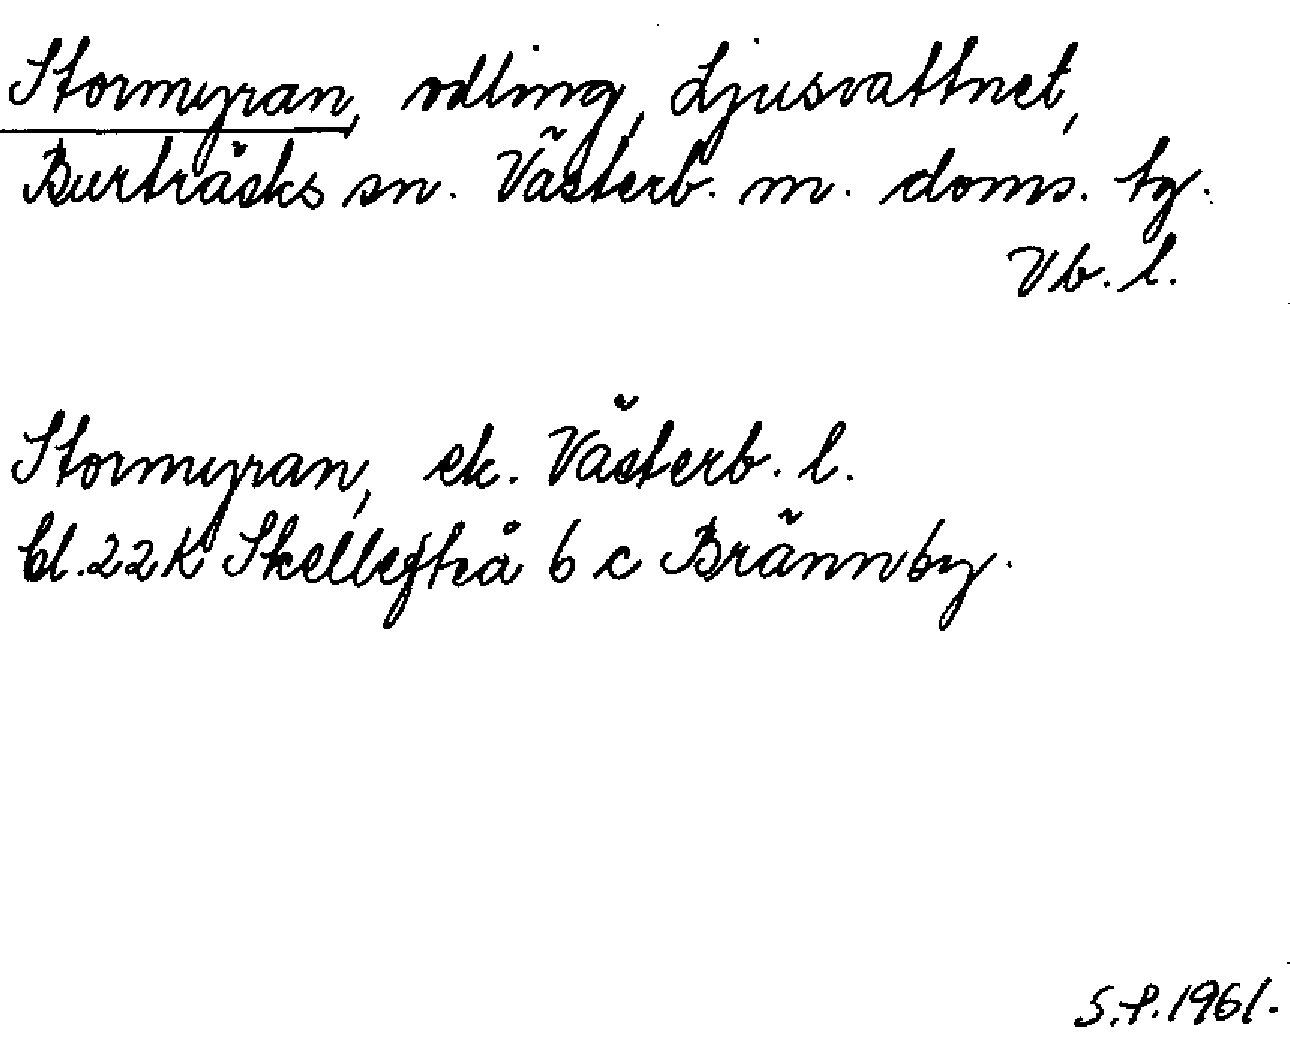 Stormyran, odling, Ljusvattnet,
Burträsks sn. Västerb. m. doms. tg.
Vb. l.
Stormyran, ek. Västerb. l.
bl. 22K Skellefteå 6 c Brännby.
S.P. 1961.